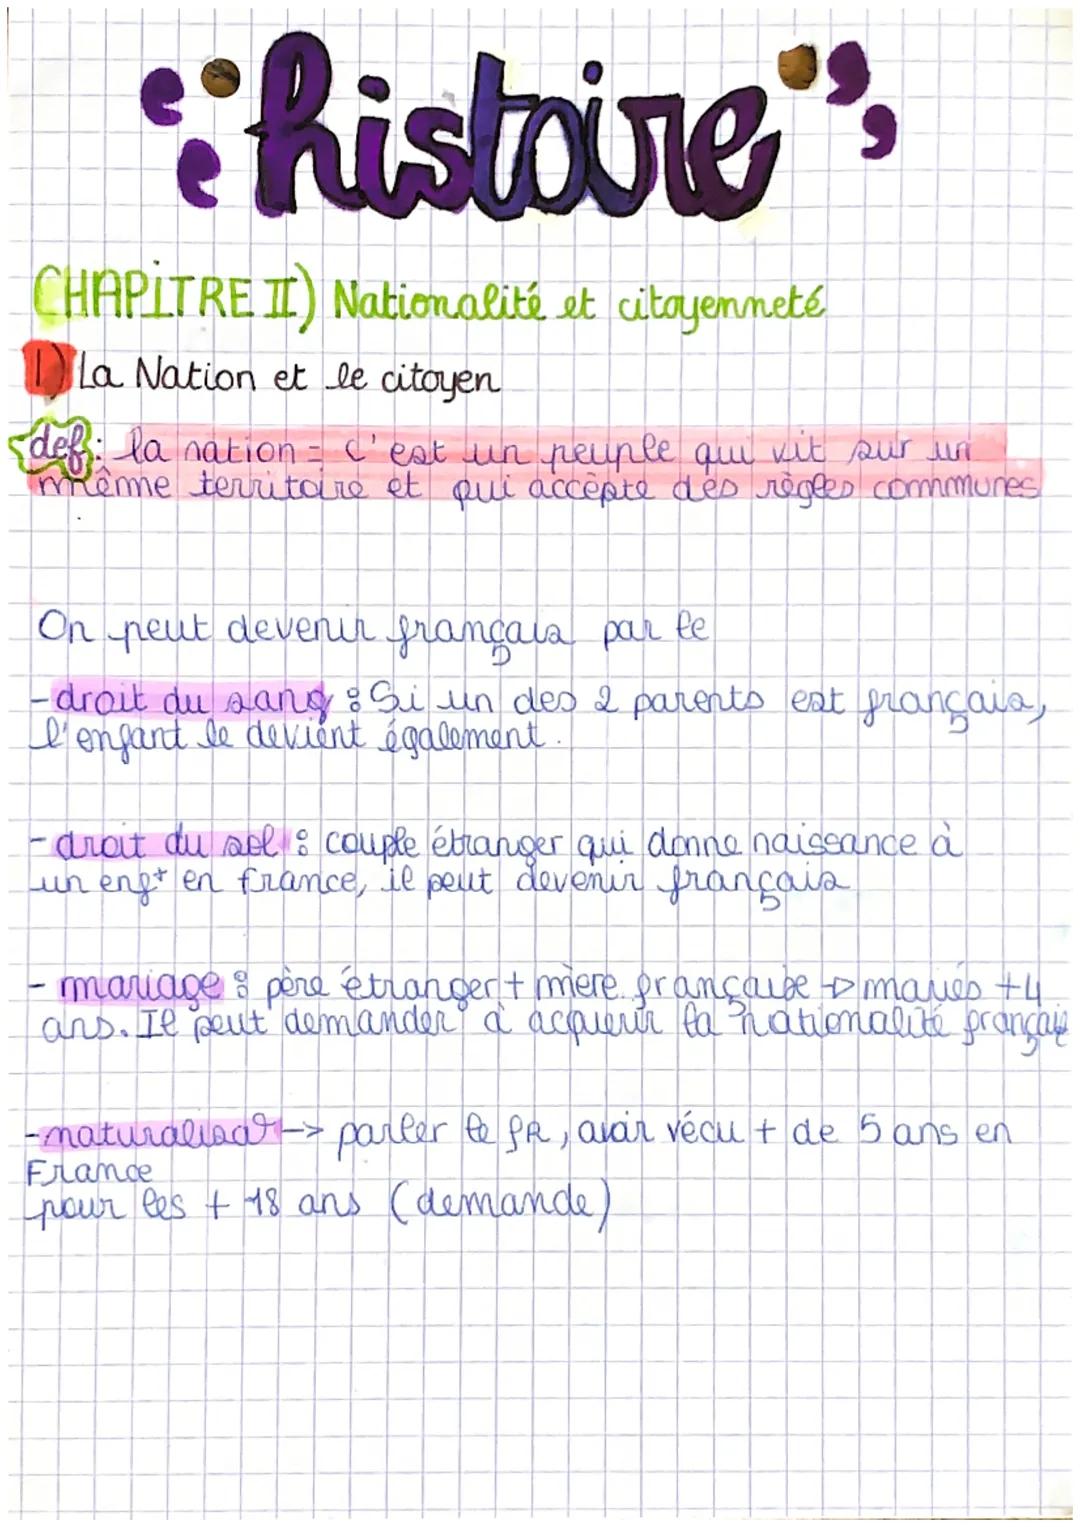 histoire
CHAPITRE II) Nationalité et citoyenneté
1) La Nation et le citoyen
def : la nation = c'est un peuple qui vit sur un
même territoire et qui accepte des règles communes
On peut devenir français par le
- droit du sang : Si un des 2 parents est français,
l'enfant le devient également.
- droit du sol : couple étranger qui donne naissance à
un enft en france, il peut devenir français
- mariage : père étranger + mère française → mariés +4
ans. Il peut demander à acquérir la nationalité française
- naturalisa° -> parler le FR, avoir vécu + de 5 ans en
France
pour les + 18 ans (demande)